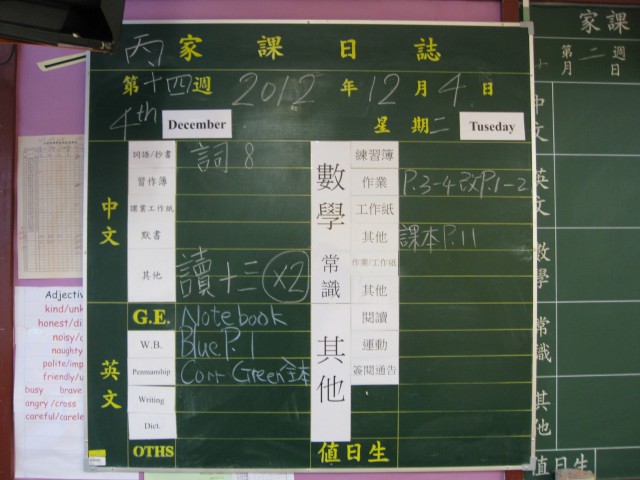 丙 家課日誌
第十四週 2012 年 12 月 4 日
4th December 星期二 Tuseday
中文
詞語/抄書 詞 8
習作簿
課業工作紙
默書
其他 讀十三 ×2
英文
G.E. Notebook
W.B. Blue P. 1
Penmanship Corr Green 全本
Writing
Dict.
OTHS
數學
練習簿
作業 P.3-4 改P.1-2
工作紙
其他 課本P.11
常識
作業/工作紙
其他
其他
閱讀
運動
簽閱通告
值日生
家課
第二週
月 日
中文
英文
數學
常識
其他
值日生
Adjectiv
kind/unk
honest/di
noisy/
naughty
polite/imp
friendly/u
busy brave
angry /cross
careful/carele